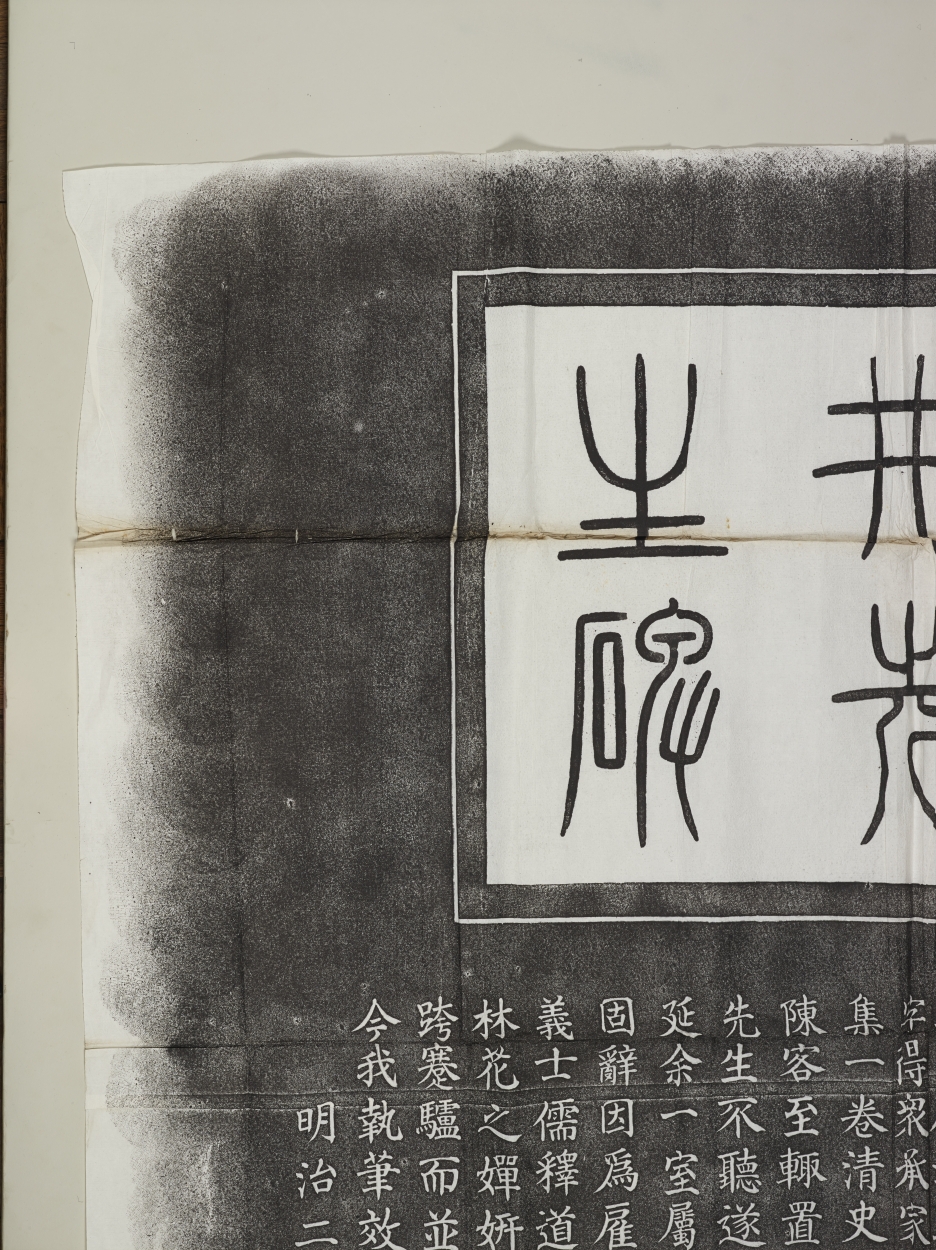 井先
生碑
字得衆承家
集一巻清史
陳客至輙置
先生不聽遂
延余一室屬
固辭因爲雇
義士儒釋道
林花之嬋妍
跨蹇驢而並
今我執筆效
明治二